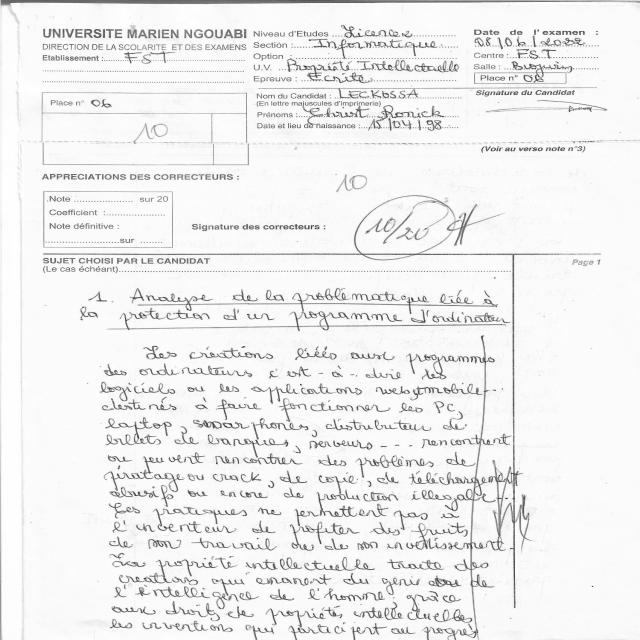 UNIVERSITE MARIEN NGOUABI
DIRECTION DE LA SCOLARITE ET DES EXAMENS
Etablissement : FST
Niveau d'Etudes Licence 2
Section : Informatique
Option :
U.V. Propriété Intellectuelle
Epreuve : Ecrite
Nom du Candidat : LECKOSSA
(En lettre majuscules d'imprimerie)
Prénoms : Christ Ronick
Date et lieu de naissance : 15/04/98
Date de l'examen :
08/06/2022
Centre : FST
Salle :
Place n° 06
Signature du Candidat
Place n° 06
10
(Voir au verso note n°3)
APPRECIATIONS DES CORRECTEURS :
10
Note sur 20
Coefficient :
Note définitive :
sur
Signature des correcteurs :
10/20
SUJET CHOISI PAR LE CANDIDAT
(Le cas échéant)
Page 1
1. Analyse de la problématique liée à
la protection d'un programme d'ordinateur
Les créations liées aux programmes
des ordinateurs c'est-à-dire les
logiciels ou les applications web, mobile...
destinés à faire fonctionner les PC,
laptop, smarphones, distributeur de
billets de banques, serveurs --- rencontrent
ou peuvent rencontrer des problèmes de
piratage ou crack, de copie, de téléchargement
abusifs ou encore de production illegale...
Ces pratiques ne permettent pas à
l'inventeur de profiter des fruits
de son travail ou de son investissement.
La propriété intellectuelle traite des
creations qui emanent du genie de
l'intelligence de l'homme, grâce
aux droits de propriétés intellectuelles
les inventions qui participent au progrès